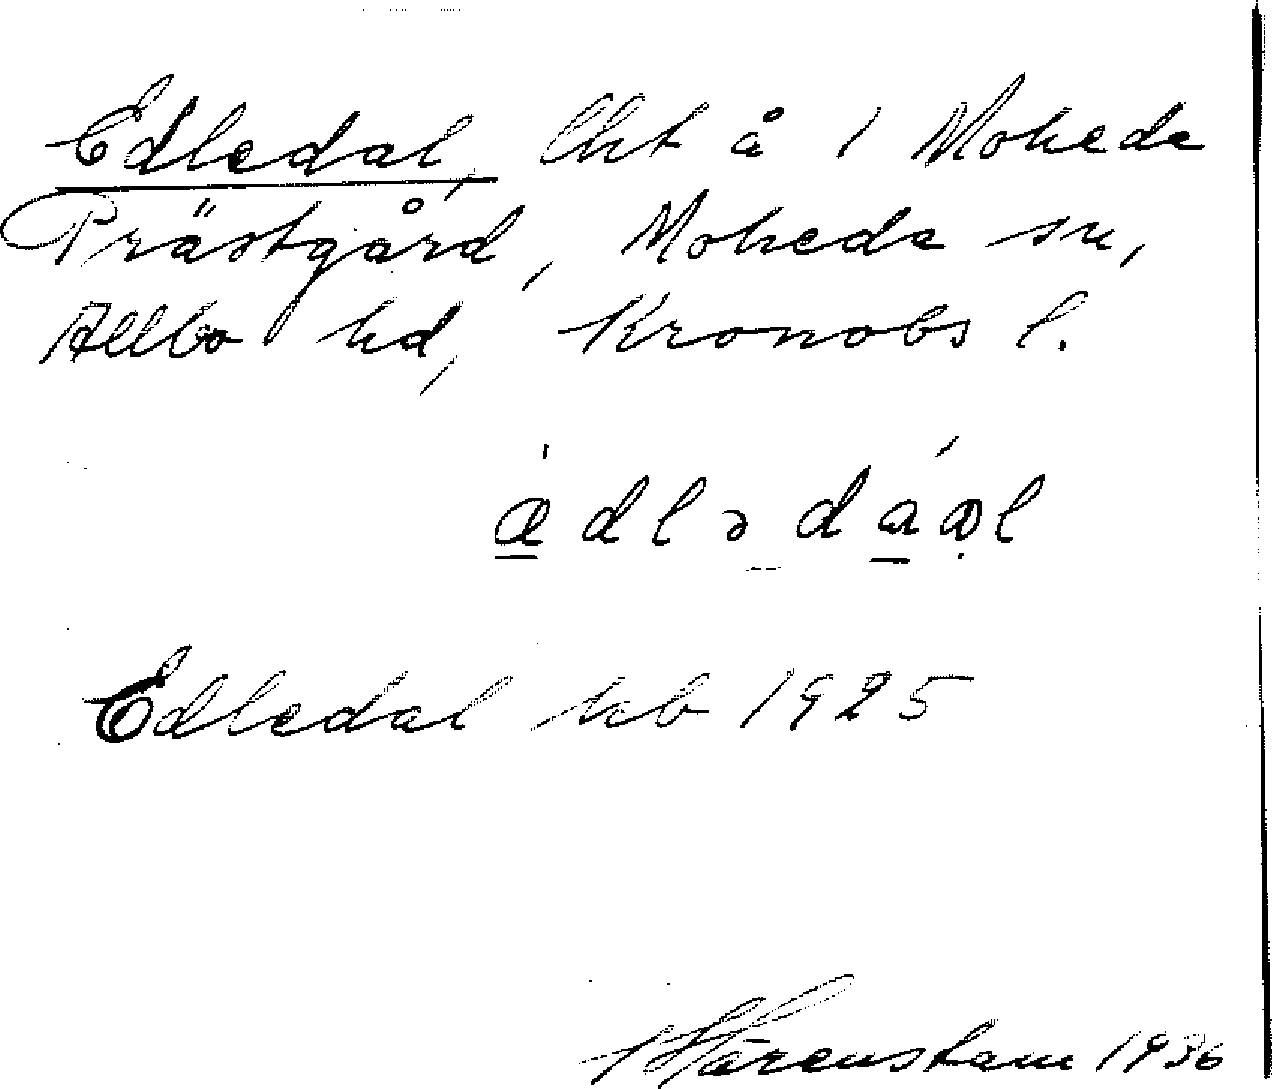 Edledal, lht å 1 Moheda
Prästgård, Moheda sn,
Allbo hd, Kronobs l.
æ̱̍ dl ə d á̱ ạl
Edledal hb 1925
Härenstam 1936